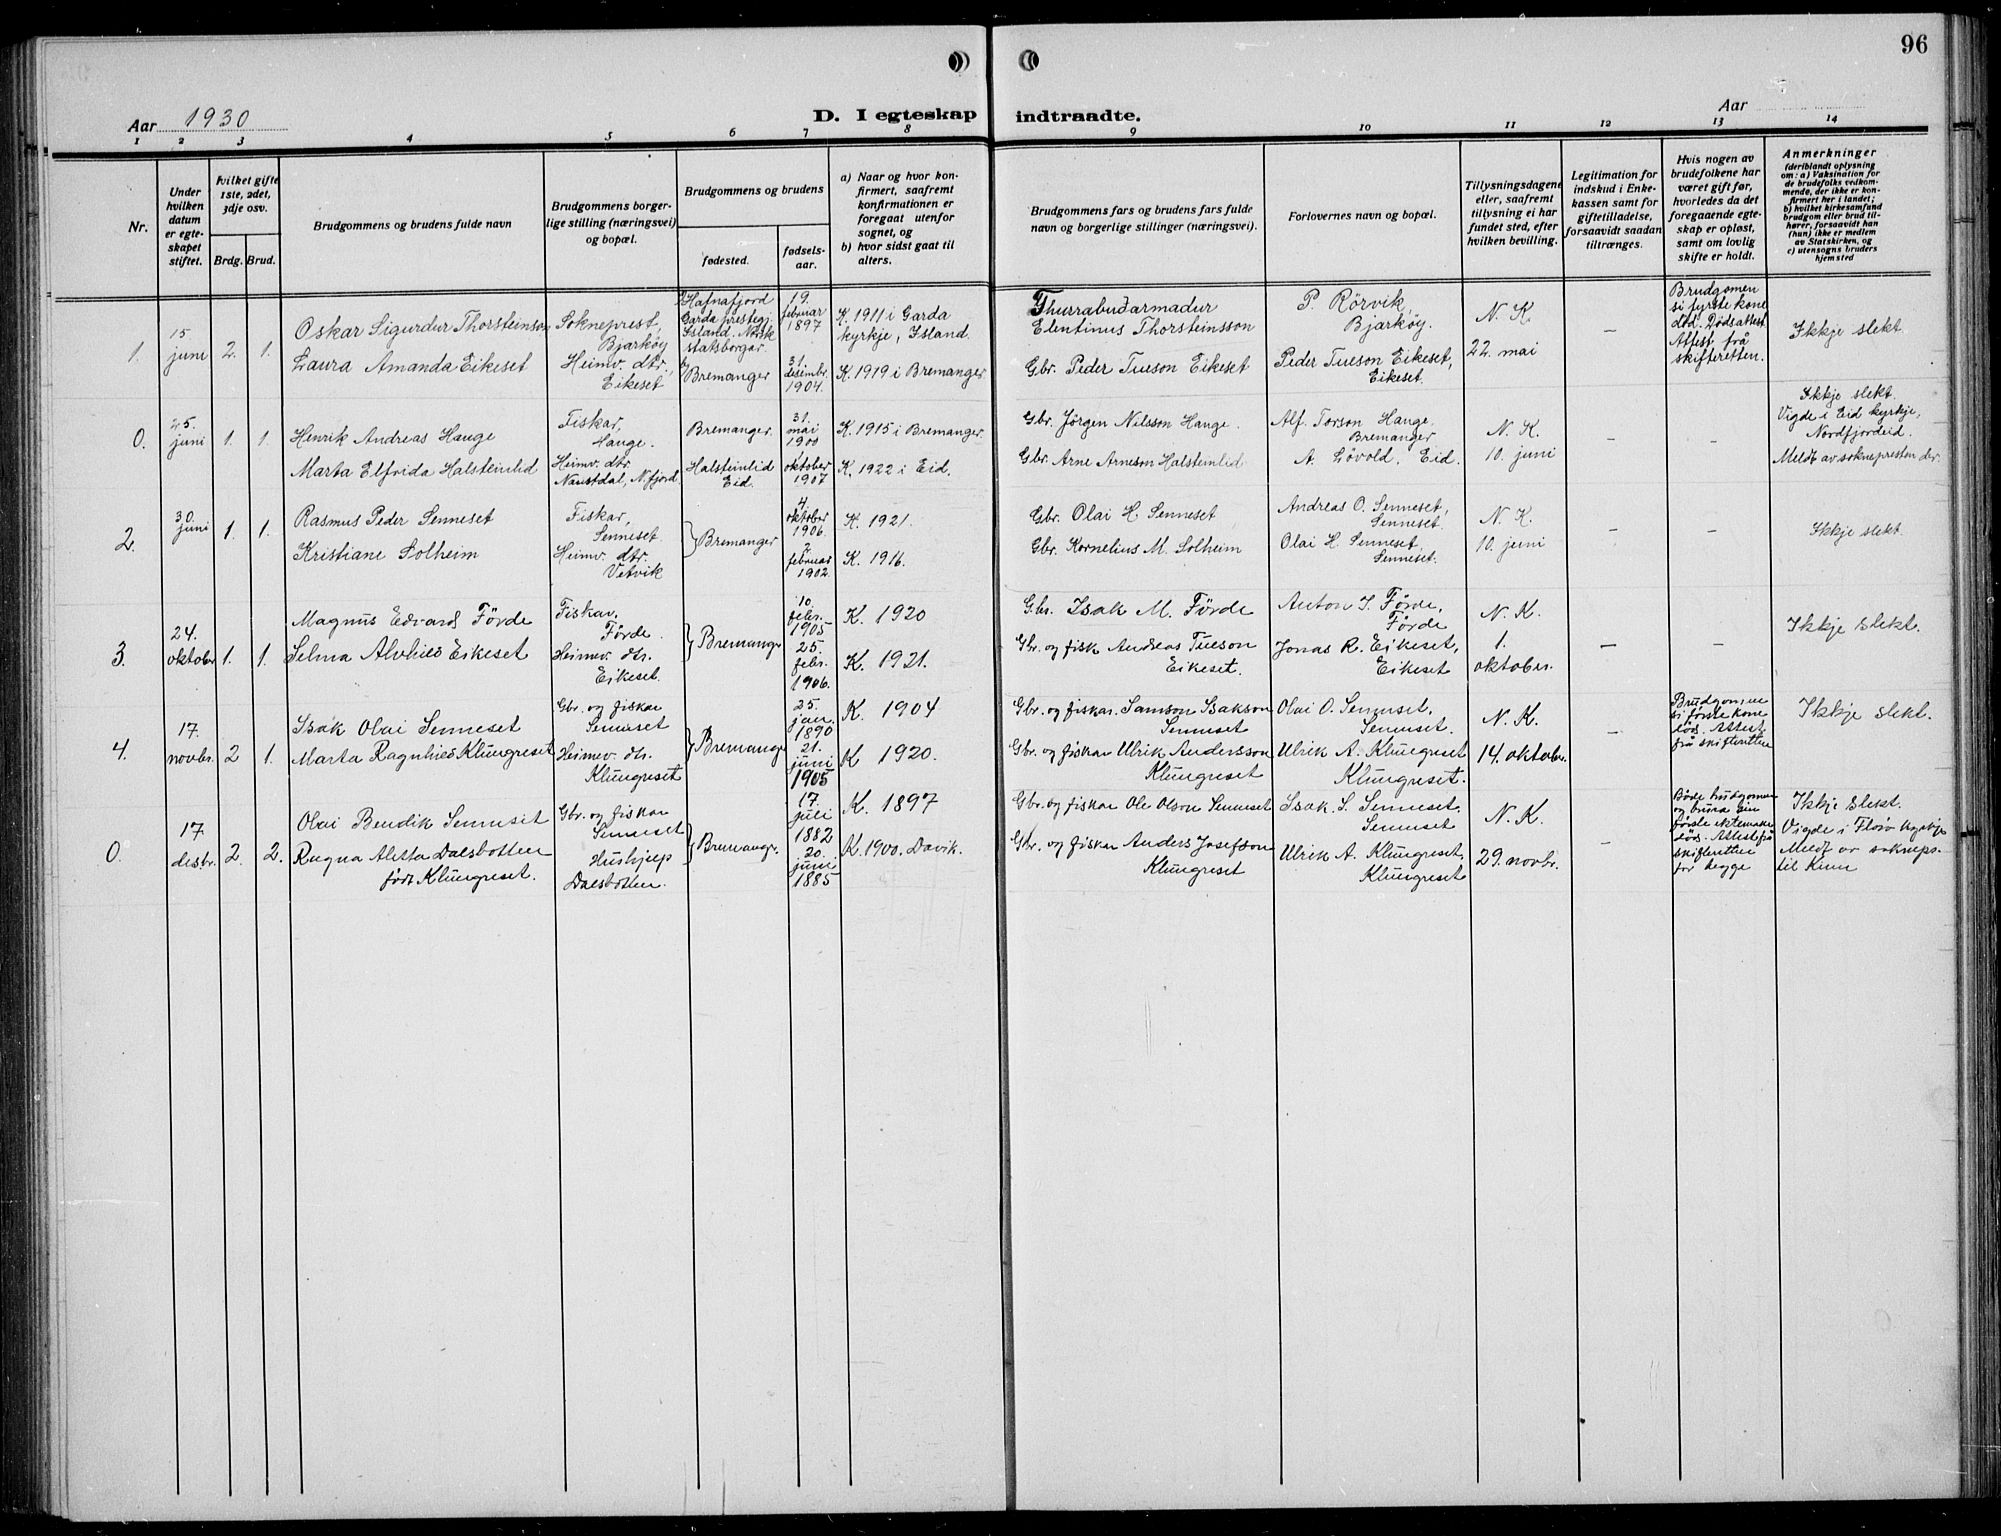 96
Aar 1930
D. I egteskap indtraadte.
Aar
1 2 3 4 5 6 7 8 9 10 11 12 13 14
Nr.
Under hvilken datum er egteskapet stiftet.
hvilket gifte 1ste, 2det, 3dje osv.
Brdg. Brud.
Brudgommens og brudens fulde navn
Brudgommens borgerlige stilling (næringsvei) og bopæl.
Brudgommens og brudens
fødested.
fødselsaar.
a) Naar og hvor konfirmert, saafremt konfirmationen er foregaat utenfor sognet, og
b) hvor sidst gaat til alters.
Brudgommens fars og brudens fars fulde navn og borgerlige stillinger (næringsvei).
Forlovernes navn og bopæl.
Tillysningsdagene eller, saafremt tillysning ei har fundet sted, efter hvilken bevilling.
Legitimation for indskud i Enkekassen samt for giftetilladelse, forsaavidt saadan tiltrænges.
Hvis nogen av brudefolkene har været gift før, hvorledes da det foregaaende egteskap er opløst, samt om lovlig skifte er holdt.
Anmerkninger
(deriblandt oplysning om: a) Vaksination for de brudefolks vedkommende, der ikke er konfirmert her i landet; b) hvilket kirkesamfund brudgom eller brud tilhører, forsaavidt han (hun) ikke er medlem av Statskirken, og c) utensogns bruders hjemsted
1. 15 juni 2. 1.
Oskar Sigurdur Thorsteinson
Sokneprest, Bjarköy
Hafnafjord Garda prestegj. Island. Norsk statsborgar.
19. februar 1897
K. 1911 i Garda kyrkje, Island.
Thurrabudarmadur Elentinus Thorsteinsson
P. Rörvik, Bjarköy.
N. K. 22. mai
—
Brudgomen si fyrste kone död. Dödsattest. Attest frå skifteretten.
Ikkje slekt
Laura Amanda Eikeset
Heimv. dtr. Eikeset
Bremanger
31. desembr. 1904.
K. 1919 i Bremanger.
Gbr. Peder Tueson Eikeset
Peder Tueson Eikeset, Eikeset.
0. 25. juni 1. 1.
Henrik Andreas Hauge
Fiskar, Hauge.
Bremanger.
31. mai 1900
K. 1915 i Bremanger.
Gbr. Jörgen Nilsson Hauge.
Alf. Torson Hauge, Bremanger
N. K. 10. juni
—
—
Ikkje slekt. Vigde i Eid kyrkje, Nordfjordeid. Meldt av soknepresten der.
Marta Elfrida Halsteinlid
Heimv. dtr. Naustdal, N.fjord
Halsteinlid Eid.
oktober 1907
K. 1922 i Eid.
Gbr. Arne Arneson Halsteinlid
A. Lövold, Eid.
2. 30. juni 1. 1.
Rasmus Peder Senneset
Fiskar, Senneset.
Bremanger
4. oktober 1906.
K. 1921.
Gbr. Olai H. Senneset
Andreas O. Senneset, Senneset.
N. K. 10. juni
—
—
Ikkje slekt
Kristiane Solheim
Heimv. dtr. Vetvik
2. februar 1902.
K. 1916.
Gbr. Kornelius M. Solheim
Olai H. Senneset, Senneset.
3. 24. oktober 1. 1.
Magnus Edvard Förde
Fiskar, Förde.
Bremanger
10. febr. 1905
K. 1920
Gbr. Isak M. Förde
Anton I. Förde, Förde
N. K. 1. oktober.
—
—
Ikkje slekt.
Selma Alvhild Eikeset
Heimv. dtr. Eikeset.
25. febr. 1906.
K. 1921.
Gbr. og fisk Andreas Tueson Eikeset.
Jonas R. Eikeset, Eikeset
4. 17. novbr. 2 1.
Isak Olai Senneset
Gbr. og fiskar Senneset
Bremanger
25. jan. 1890
K. 1904
Gbr. og fiskar. Samson Isakson Senneset
Olai O. Senneset, Senneset.
N. K. 14. oktober.
—
Brudgomen si første kone død. Attest frå skifteretten
Ikkje slekt.
Marta Ragnhild Klungreset
Heimev. dtr. Klungreset
21. juni 1905
K 1920.
Gbr. og fiskar Ulrik Andersson Klungreset
Ulrik A. Klungreset Klungreset.
0. 17. desbr. 2. 2.
Olai Bendik Senneset
Gbr. og fiskar Senneset
Bremangr.
17. juli 1882
K. 1897
Gbr. og fiskar Ole Olson Senneset
Isak S. Senneset. Senneset
N. K. 29. novbr.
—
Både brudgomen og brura sin første ektemake død. Attest frå skifteretten for begge
Ikkje slekt. Vigde i Florø kyrkje Meldt av sokneps. til Kinn
Ragna Aletta Dalsbotten født Klungreset.
Hushjelp Dalsbotten.
20. juni 1885
K. 1900. Davik.
Gbr. og fiskar Anders Josefson Klungreset
Ulrik A. Klungreset, Klungreset